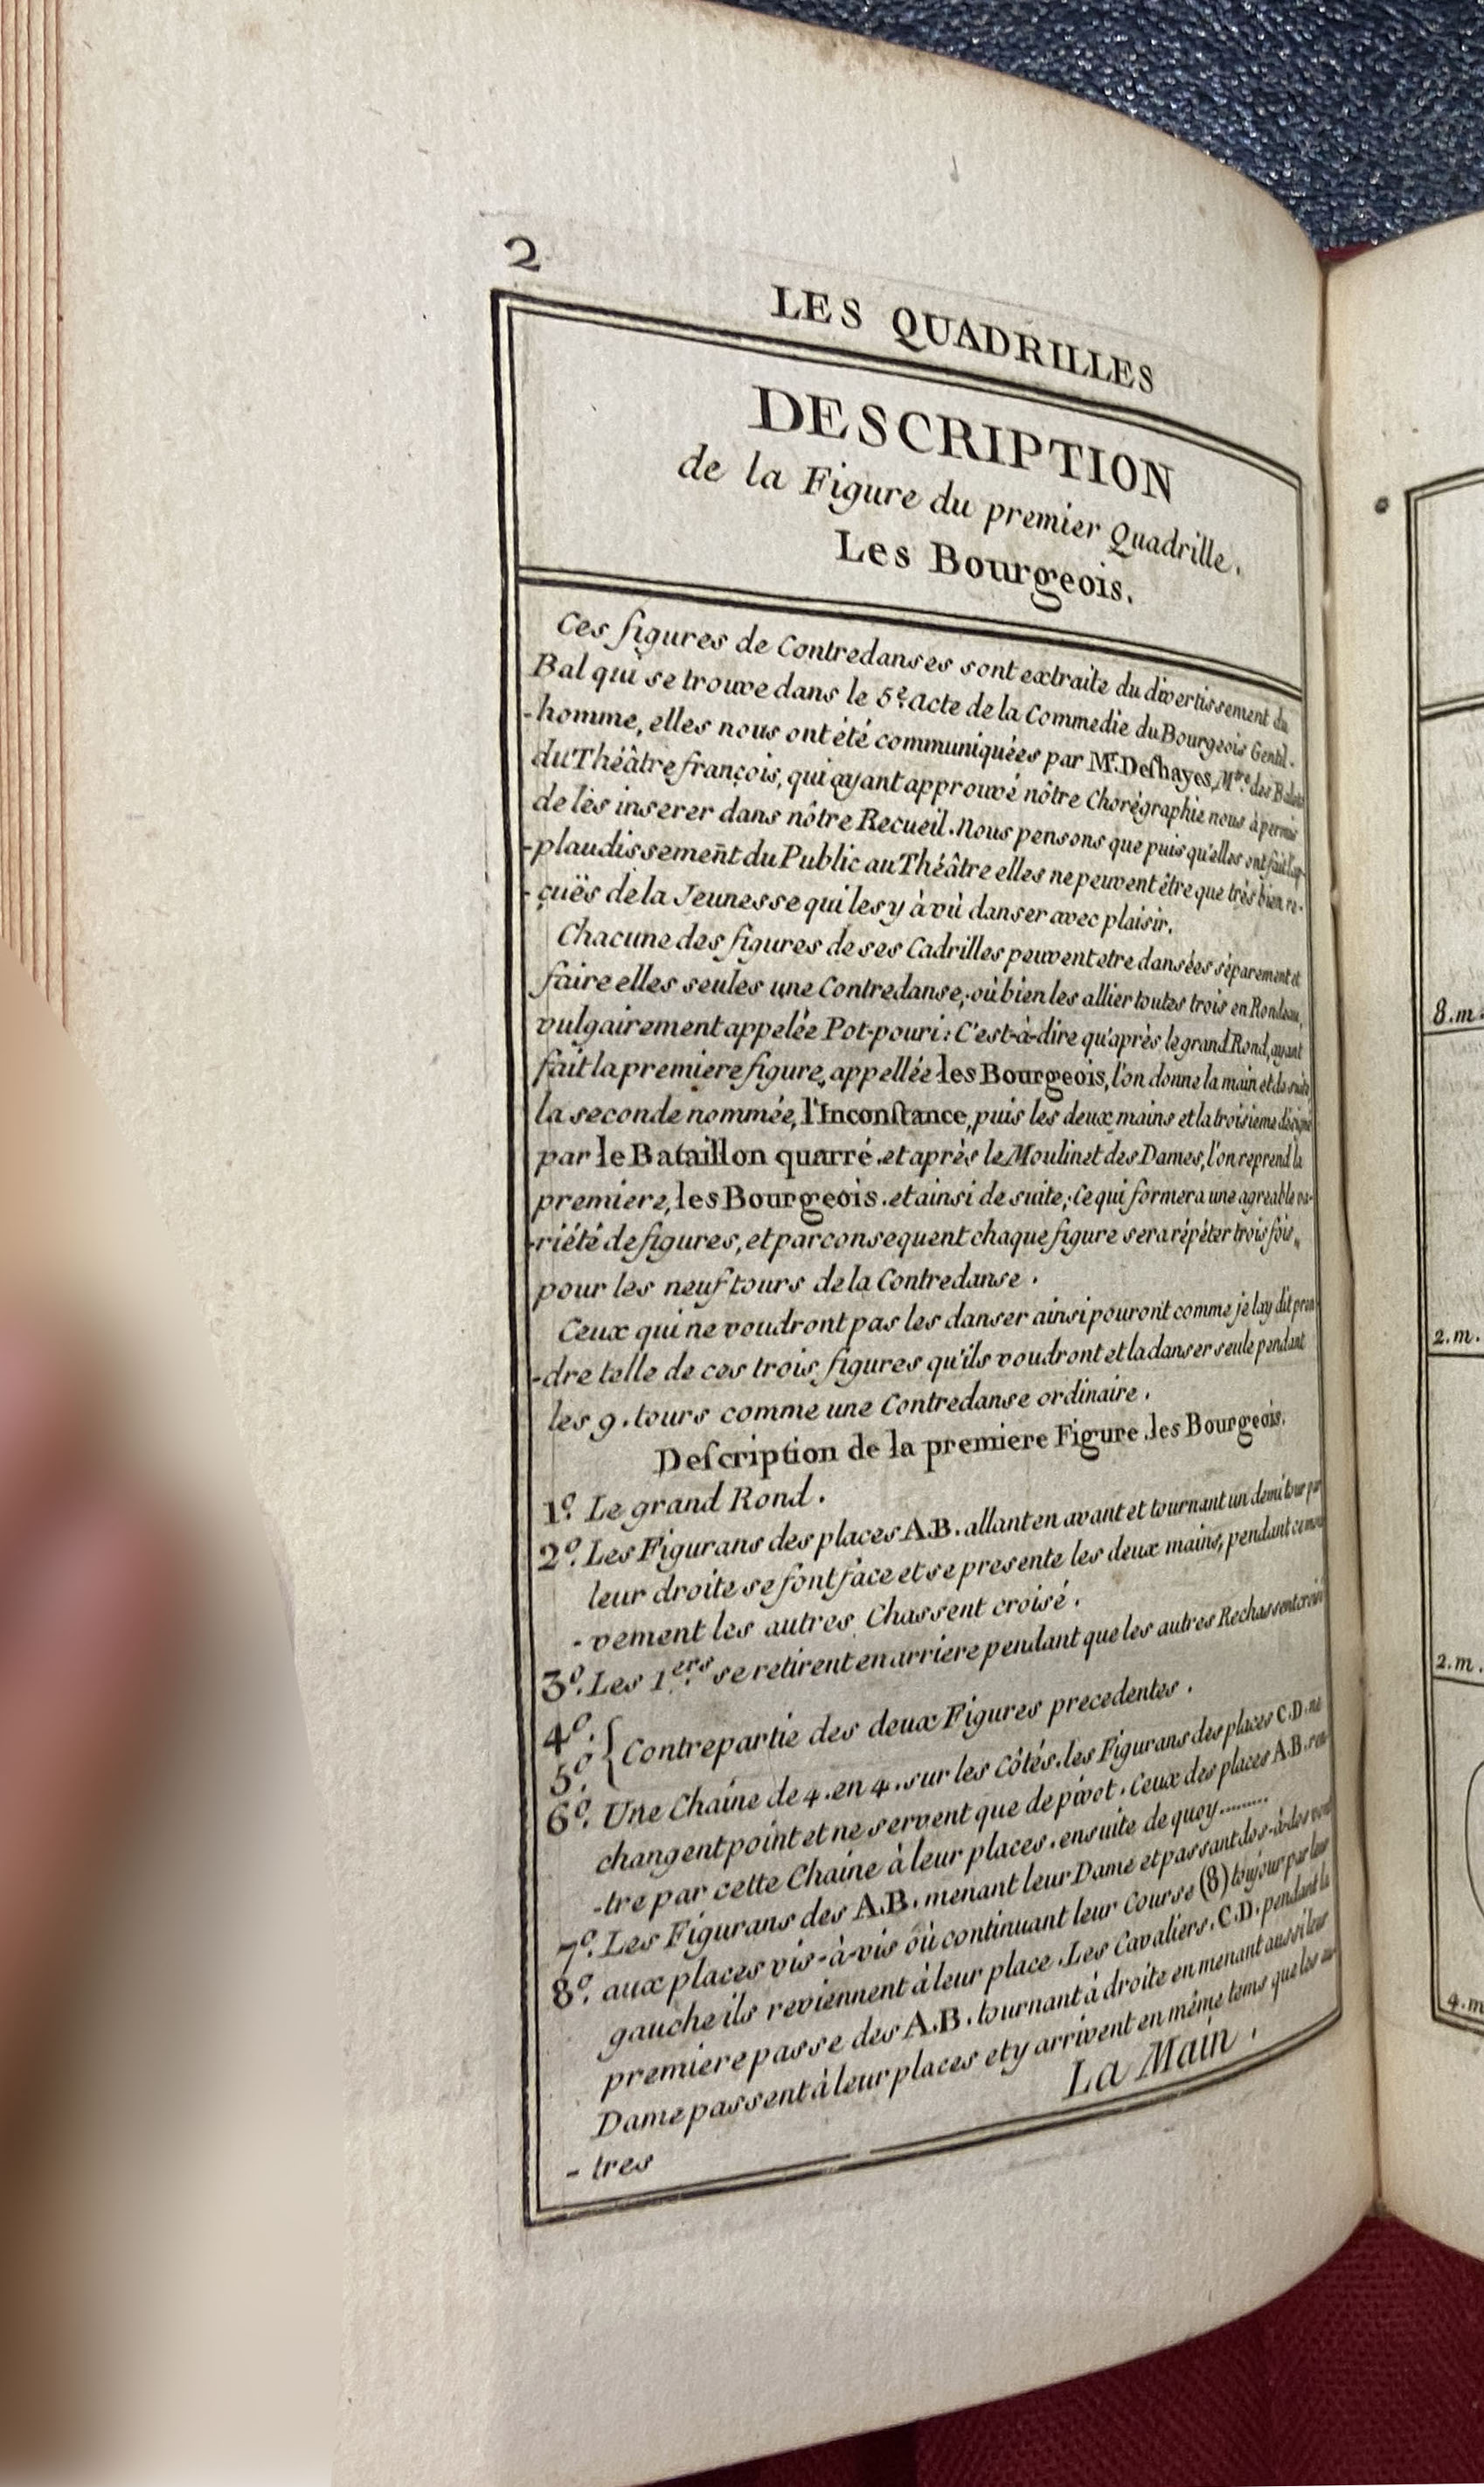 2
LES QUADRILLES
DESCRIPTION
de la Figure du premier Quadrille.
Les Bourgeois.
Ces figures de Contredanses sont extraite du divertissement du
Bal qui se trouve dans le 5.e Acte de la Commedie du Bourgeois Gentil-
-homme, elles nous ont été communiquées par M.r Deshayes, M.tre des Balets
du Théâtre françois, qui ayant approuvé nôtre Chorégraphie nous à permis
de lès inserer dans nôtre Recueil. Nous pensons que puis qu'elles ont fait l'ap-
-plaudissement du Public au Théâtre elles ne peuvent être que très bien re-
-çuës de la Jeunesse qui les y à vû danser avec plaisir.
Chacune des figures de ses Cadrilles peuvent etre dansées séparement et
faire elles seules une Contredanse, où bien les allier toutes trois en Rondeau,
vulgairement appelée Pot-pouri: C'est-à-dire qu'après le grand Rond, ayant
fait la premiere figure, appellée les Bourgeois, l'on donne la main et de suite
la seconde nommée, l'Inconstance, puis les deux mains et la troisieme désigné
par le Bataillon quarré. et après le Moulinet des Dames, l'on reprend la
premiere, les Bourgeois. et ainsi de suite; Ce qui formera une agreable va-
-riété de figures, et par consequent chaque figure sera répéter trois fois,
pour les neuf tours de la Contredanse.
Ceux qui ne voudront pas les danser ainsi pouront comme je lay dit pren-
-dre telle de ces trois figures qu'ils voudront et la danser seule pendant
les 9. tours comme une Contredanse ordinaire.
Description de la premiere Figure les Bourgeois.
1.o Le grand Rond.
2.o Les Figurans des places A.B. allant en avant et tournant un demi tour par
leur droite se font face et se presente les deux mains, pendant ce mou-
-vement les autres Chassent croisé.
3.o Les 1.ers se retirent en arriere pendant que les autres Rechassent croisé
4.o
5.o { Contrepartie des deux Figures precedentes.
6.o Une Chaine de 4. en 4. sur les Côtés. les Figurans des places C.D. ne
changent point et ne servent que de pivot. Ceux des places A.B. ren-
-tre par cette Chaine à leur places. ensuite de quoy.........
7.o Les Figurans des A.B. menant leur Dame et passant dos-à-dos vont
8.o aux places vis-à-vis où continuant leur Course (8) toujour par leur
gauche ils reviennent à leur place. Les Cavaliers. C.D. pendant la
premiere passe des A.B. tournant à droite en menant aussi leur
Dame passent à leur places et y arrivent en même tems que les au-
-tres
La Main.
8.m.
2.m.
2.m.
4.m